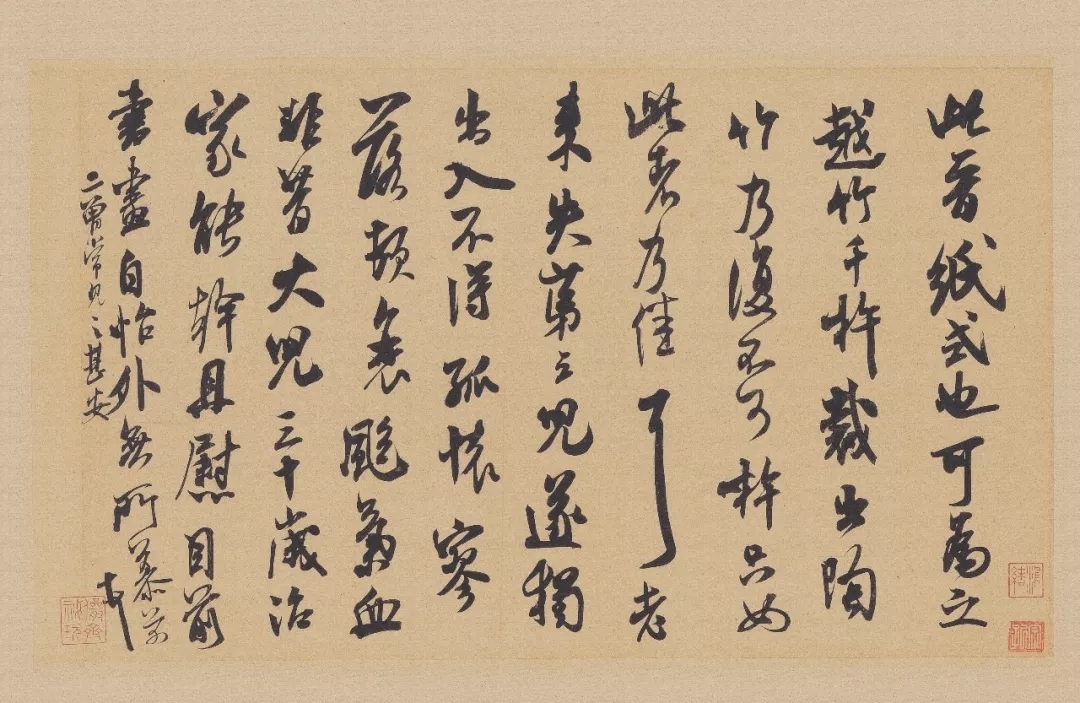 此晉紙式也可為之
越竹千杵裁出陶
竹乃復不可杵只如
此者乃佳耳老
來失第三兒遂獨
出入不得孤懷寥
落頓衰颮氣血
非昔大兒三十歲治
家能幹且慰目前
書畫自怡外無所慕芾
二曾常見之甚安